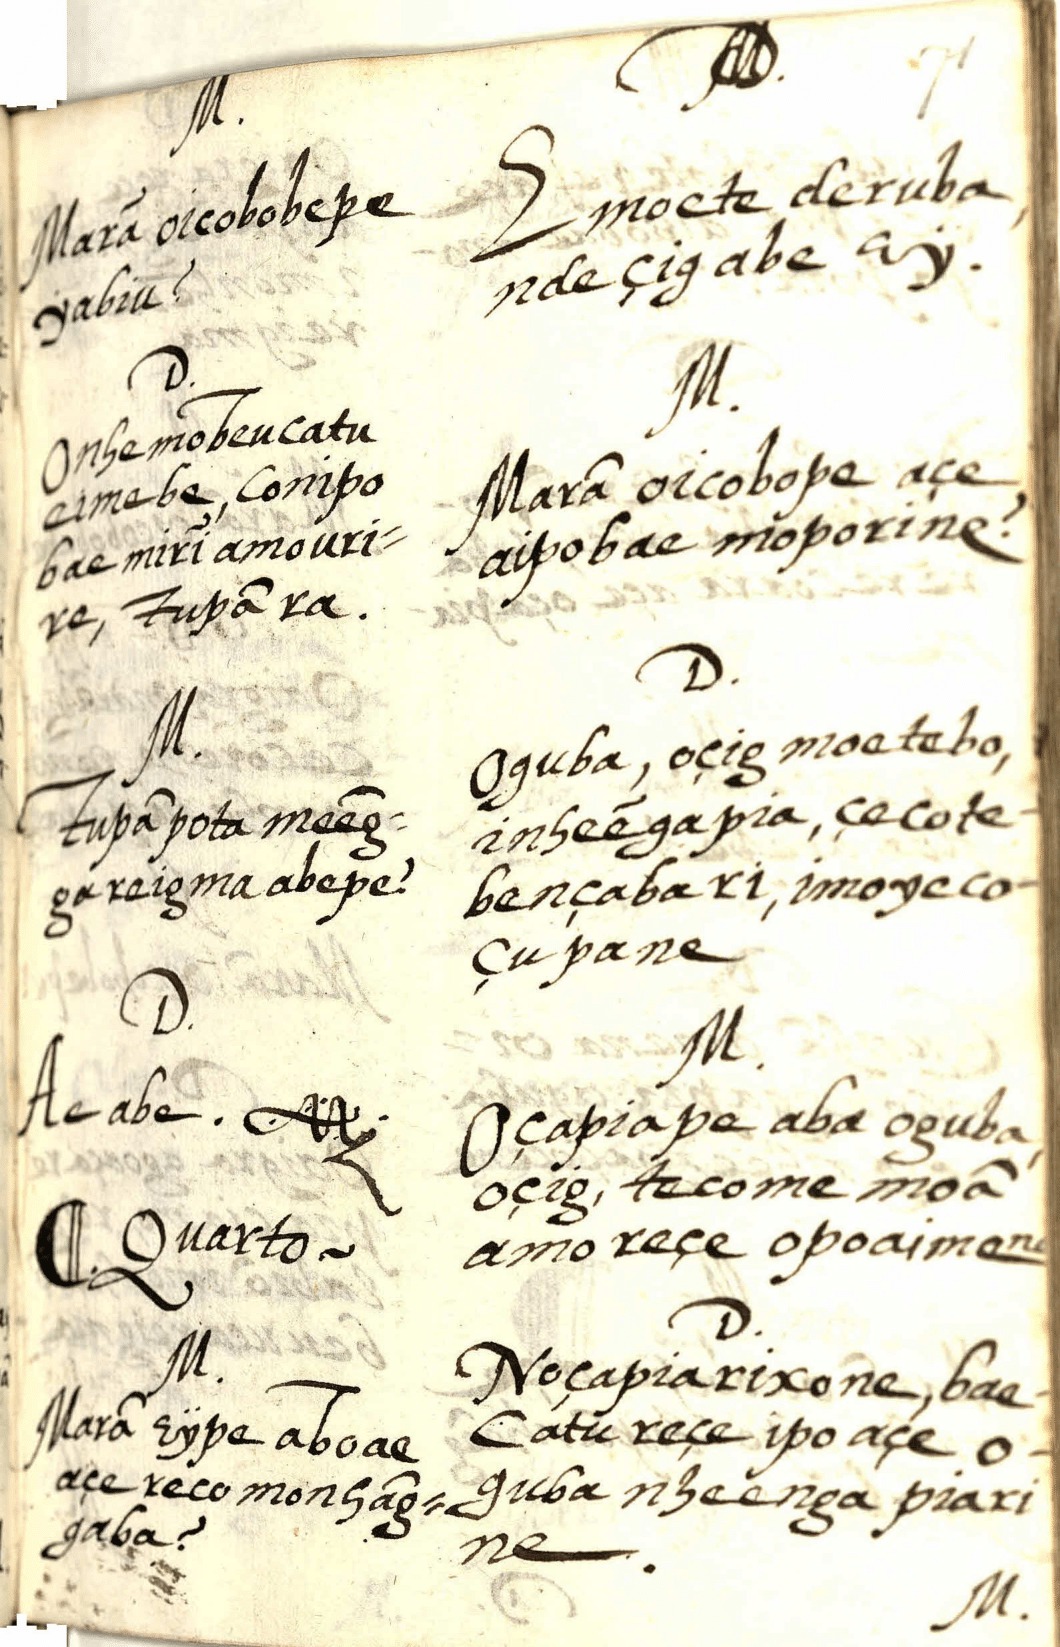 M.
Marã oicobobepe
yabiũ?
D.
Onhemobeucatu
eimebe, Conipo
bae mirĩ amouri=
re, tupã ra.
M.
Tupã pota meeg̃=
gareigma abepe?
D.
Ae abe.
C. Quarto ~
M.
Marã eÿpe aboae
açe reco monhag̃=
gaba?
D. 71
Emoete deruba,
nde çig abe ey.
M.
Marã oicobope açe
aipobae moporine?
D.
Oguba, oçig moetebo,
inheẽgapia, çecote-
bençaba ri, imoyeco-
çupane
M.
Oçapiape aba oguba,
oçig, tecome moã
amo reçe opoaimene
D.
Noçapiarixone, bae-
Catu reçe ipo açe o-
guba nheenga piari
ne.
M.